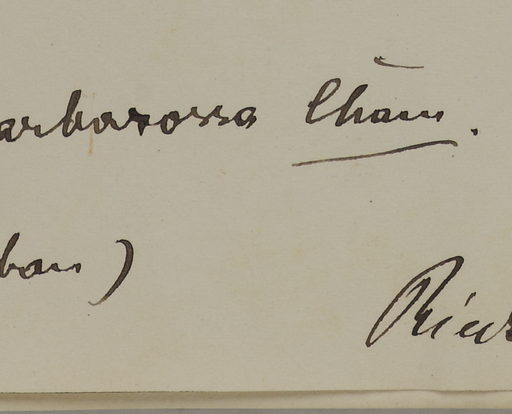 arbarossa Cham.
ban )